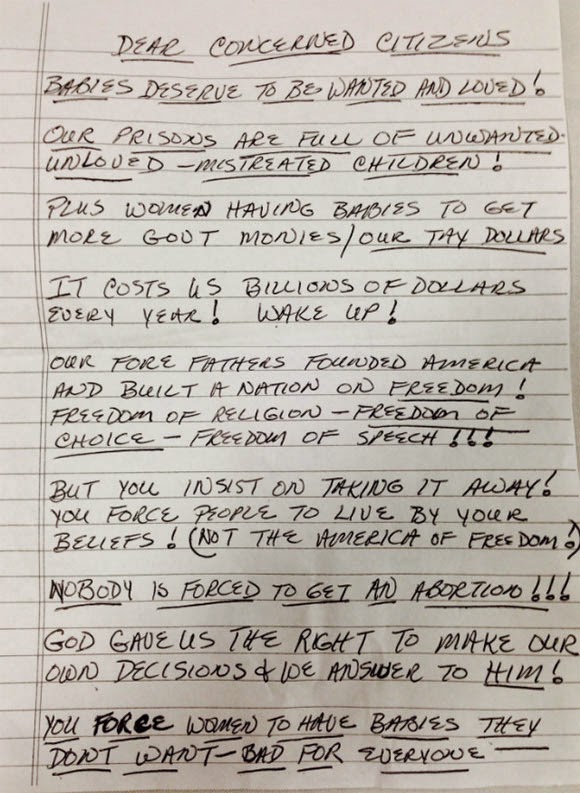 DEAR CONCERNED CITIZENS
BABIES DESERVE TO BE WANTED AND LOVED!
OUR PRISONS ARE FULL OF UNWANTED-
UNLOVED - MISTREATED CHILDREN!
PLUS WOMEN HAVING BABIES TO GET
MORE GOVT MONIES/OUR TAX DOLLARS
IT COSTS US BILLIONS OF DOLLARS
EVERY YEAR! WAKE UP!
OUR FORE FATHERS FOUNDED AMERICA
AND BUILT A NATION ON FREEDOM!
FREEDOM OF RELIGION - FREEDOM OF
CHOICE - FREEDOM OF SPEECH!!!
BUT YOU INSIST ON TAKING IT AWAY!
YOU FORCE PEOPLE TO LIVE BY YOUR
BELIEFS! (NOT THE AMERICA OF FREEDOM!)
NOBODY IS FORCED TO GET AN ABORTION!!!
GOD GAVE US THE RIGHT TO MAKE OUR
OWN DECISIONS & WE ANSWER TO HIM!
YOU FORCE WOMEN TO HAVE BABIES THEY
DONT WANT - BAD FOR EVERYONE